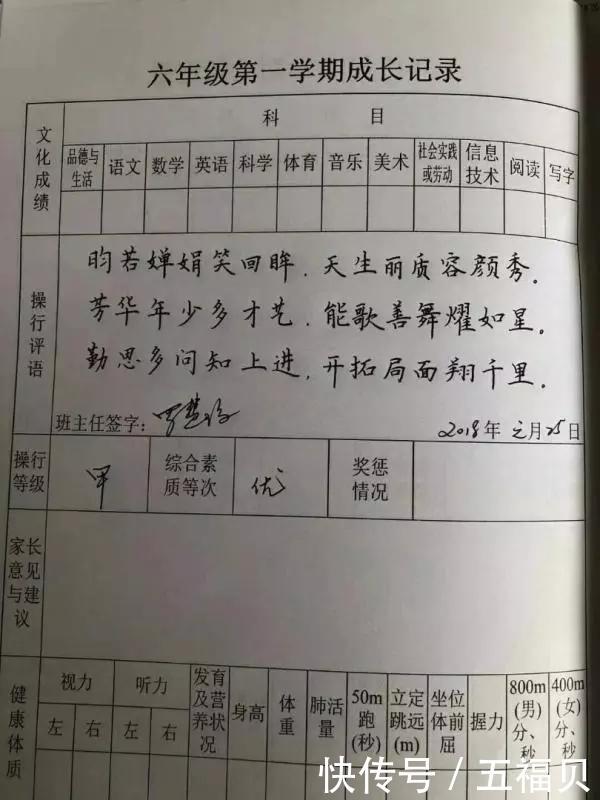 六年级第一学期成长记录
文化成绩
科 目
品德与生活 语文 数学 英语 科学 体育 音乐 美术 社会实践或劳动 信息技术 阅读 写字
操行评语
昀若婵娟笑回眸.天生丽质容颜秀.
芳华年少多才艺.能歌善舞耀如星.
勤思多问知上进.开拓局面翔千里.
班主任签字: 2018年 元月25日
操行等级 甲 综合素质等次 优 奖惩情况
家长意见与建议
健康体质
视力 听力 发育及营养状况 身高 体重 肺活量 50m跑(秒) 立定跳远(m) 坐位体前屈 握力 800m(男)分、秒 400m(女)分、秒
左 右 左 右
快传号 / 五福贝